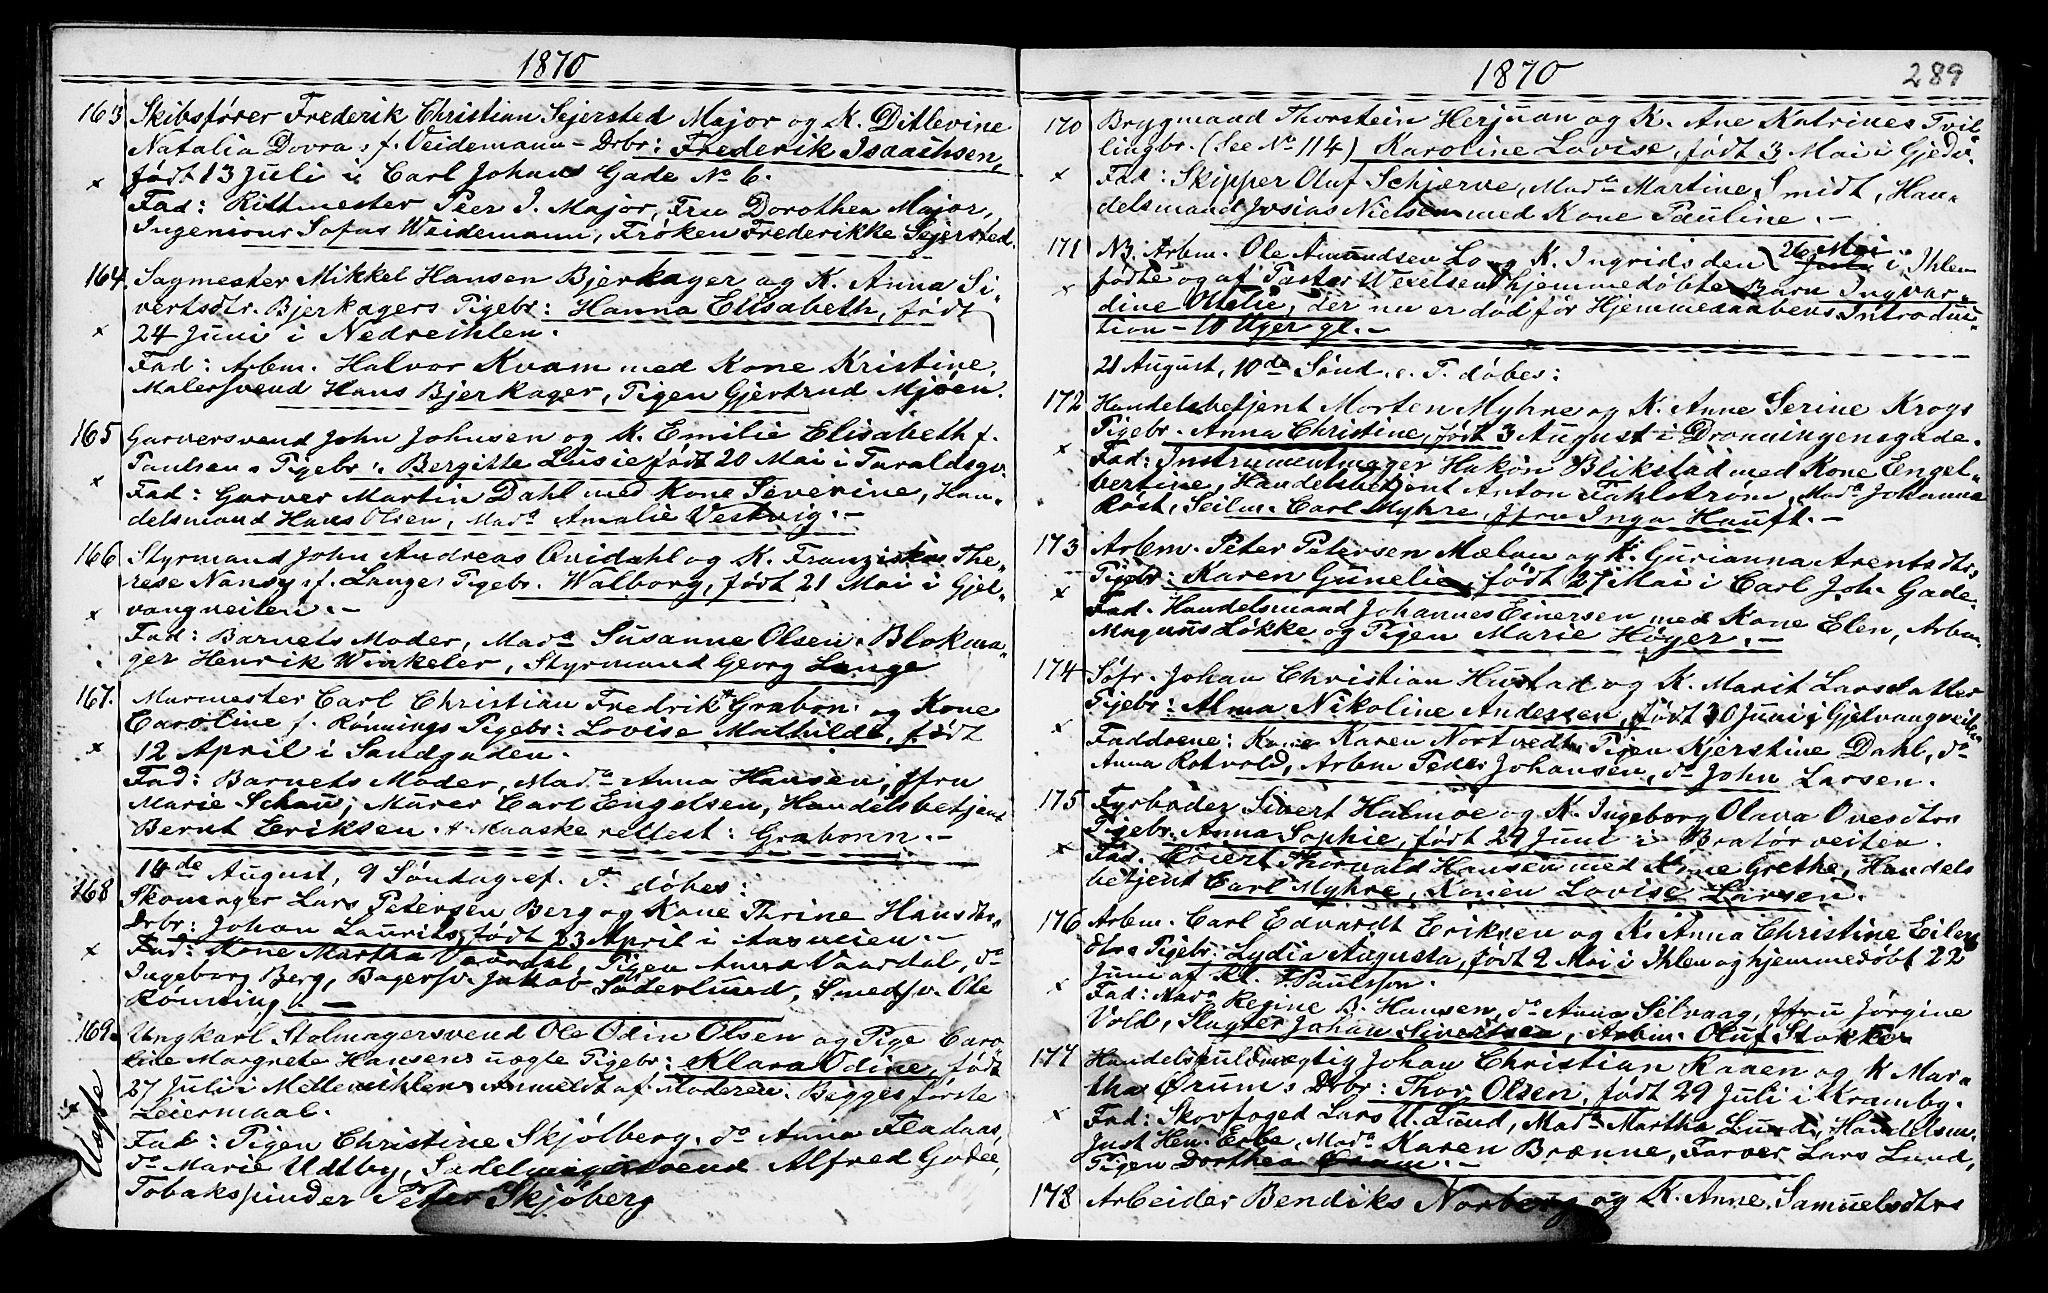 1870
163 Skibsfører Frederik Christian Sejersted Major og K. Ditlevine
Natalia Dovra f. Veidemann - Drbr: Frederik Isaachsen,
født 13 Juli i Carl Johans Gade No 6.
Fad: Rittmester Peer I. Major, Fru Dorothea Major,
Ingeniour Sofus Weidemann, Frøken Frederikke Sejersted.
164 Sagmester Mikkel Hansen Bjerkager og K. Anna Si-
vertsdtr. Bjerkagers Pigebr: Hanna Elisabeth, født
x 24 Juni i Nedreihlen.
Fad: Arbm. Halvor Kvam med Kone Kristine,
Malersvend Hans Bjerkager, Pigen Gjertrud Mjøen.
165 Garversvend John Johnsen og K. Emilie Elisabeth f.
Paulsens Pigebr: Bergitte Lusie født 20 Mai i Taraldsgv.
x Fad: Garver Martin Dahl med Kone Severine, Han-
delsmand Hans Olsen, Mada Amalie Vestvig. -
166 Styrmand John Andreas Qvidahl og K. Franziska The-
rese Nansy f. Langes Pigebr. Walborg, født 21 Mai i Gjel-
x vangveiten. -
Fad: Barnets Moder, Mada Susanne Olsen, Blokma-
ger Henrik Winkeler, Styrmand Georg Lange
167. Murmester Carl Christian Fredrik + Grabon og Kone
Caroline f. Rønnings Pigebr: Lovise Mathilde, født
x 12 April i Sandgaden.
Fad: Barnets Moder, Mada Anna Hansen, Jfru
Marie Schau, Murer Carl Engelsen, Handelsbetjent
Bernt Eriksen. + Maaske rettest: Grabonn. -
14de August, 9 Søndag ef. T. døbes:
168 Skomager Lars Petersen Berg og Kone Thrine Hansdtrs
Drbr: Johan Laurits, født 23 April i Aasveien. -
x Fad: Kone Martha Vaardal, Pigen Anna Vaardal, do
Ingeborg Berg, Bagersv. Jakob Søderlund, Smedsv. Ole
Rønning. -
169. Ungkarl Stolmagersvend Ole Odin Olsen og Pige Caro-
line Margrete Hansens uægte Pigebr: Klara Odine, født
27 Juli i Mellemihlen. Anmeldt af Moderen. Begges første
x Uægte Leiermaal.
Fad: Pigen Christine Skjølberg, do Anna Fladaas,
do Marie Udtby, Sadelmagersvend Alfred Godee,
Tobakspinder Peter Skjøberg
1870 289
170 Brygmand Thorstein Herjuan og K. Ane Katrines Tvil-
lingbr. (See No 114) Karoline Lovise, født 3 Mai i Gjedv.
x Fad: Skipper Oluf Schjærve, Mada Martine Smidt, Han-
delsmand Josias Nielsen med Kone Pauline. -
171 NB: Arbm. Ole Amundsen Lo og K. Ingrids den 26 Mai i Ihlen
fødte og af Pastor Wexelsen hjemmedøbte Barn Ingvar-
x dine Otelie, der nu er død før Hjemmedaabens Introduc-
tion - 10 Uger gl. -
21 August, 10de Sønd. e. T. døbes:
172 Handelsbetjent Morten Myhre og K. Anne Serine Krogs
Pigebr. Anna Christine, født 3 August i Dronningensgade.
x Fad: Instrumentmager Hakon Blikstad med Kone Engel-
bertine, Handelsbetjent Anton Fahlstrøm, Mada Johanna
Røst, Seilm. Carl Myhre, Jfru Inga Hauft. -
173 Arbm. Peter Petersen Mælan og K. Gurianna Arentsdtrs
Pigebr: Karen Gunelie, født 27 Mai i Carl Joh. Gade.
x Fad. Handelsmand Johannes Einersen med Kone Elen, Arbm.
Magnus Løkke og Pigen Marie Høyer. -
174 Søfr. Johan Christian Hustad og K. Marit Larsdatter
Pigebr: Alma Nikoline Andersen, født 30 Juni i Gjelvangveiten
x Faddrene: Kone Karen Nortvedt, Pigen Kjerstine Dahl, do
Anna Rotvold, Arbm Peder Johansen, do John Larsen.
175 Fyrbøder Sivert Halmøe og K. Ingeborg Olava Ovesdtrs
Pigebr. Anna Sophie, født 29 Juni i Bratørveiten.
x Fad. Thorvald Hansen med Kone Grethe, Handels
betjent Carl Myhre, Konen Lovise Larsen.
176 Arbm. Carl Edvardt Eriksen og K. Anna Christine Eilers
dtrs Pigebr: Lydia Augusta, født 2 Mai i Ihlen og hjemmedøbt 22
x Juni af Kl. Paulsson.
Fad: Mada Regine B. Hansen, do Anna Selvaag, Jfru Jørgine
Vold, Slagter Johan Sivertsen, Arbm. Oluf Stokker
177 Handelsfuldmægtig Johan Christian Raaen og K Mar-
tha Ørums Drbr: Thor Olsen, født 29 Juli i Kramby.
x Fad: Skovfoged Lars U. Lund, Mada Martha Lund, Handelsm.
Just Hen. Erbe, Mada Karen Brænne, Farver Lars Lund,
Pigen Dorthea Ørum. -
178 Arbeider Bendiks Norberg og K. Anne Samuelsdtrs